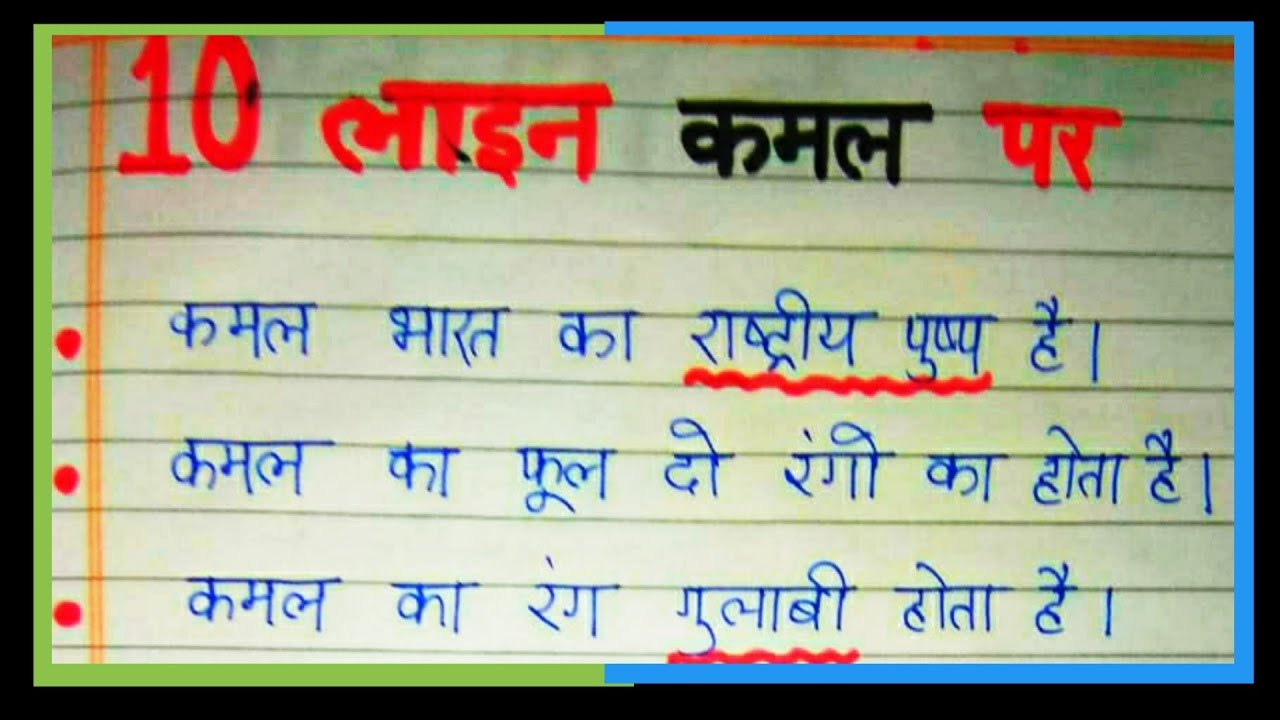 10 लाइन कमल पर
कमल भारत का राष्ट्रीय पुष्प है।
कमल का फूल दो रंगो का होता है।
कमल का रंग गुलाबी होता है।